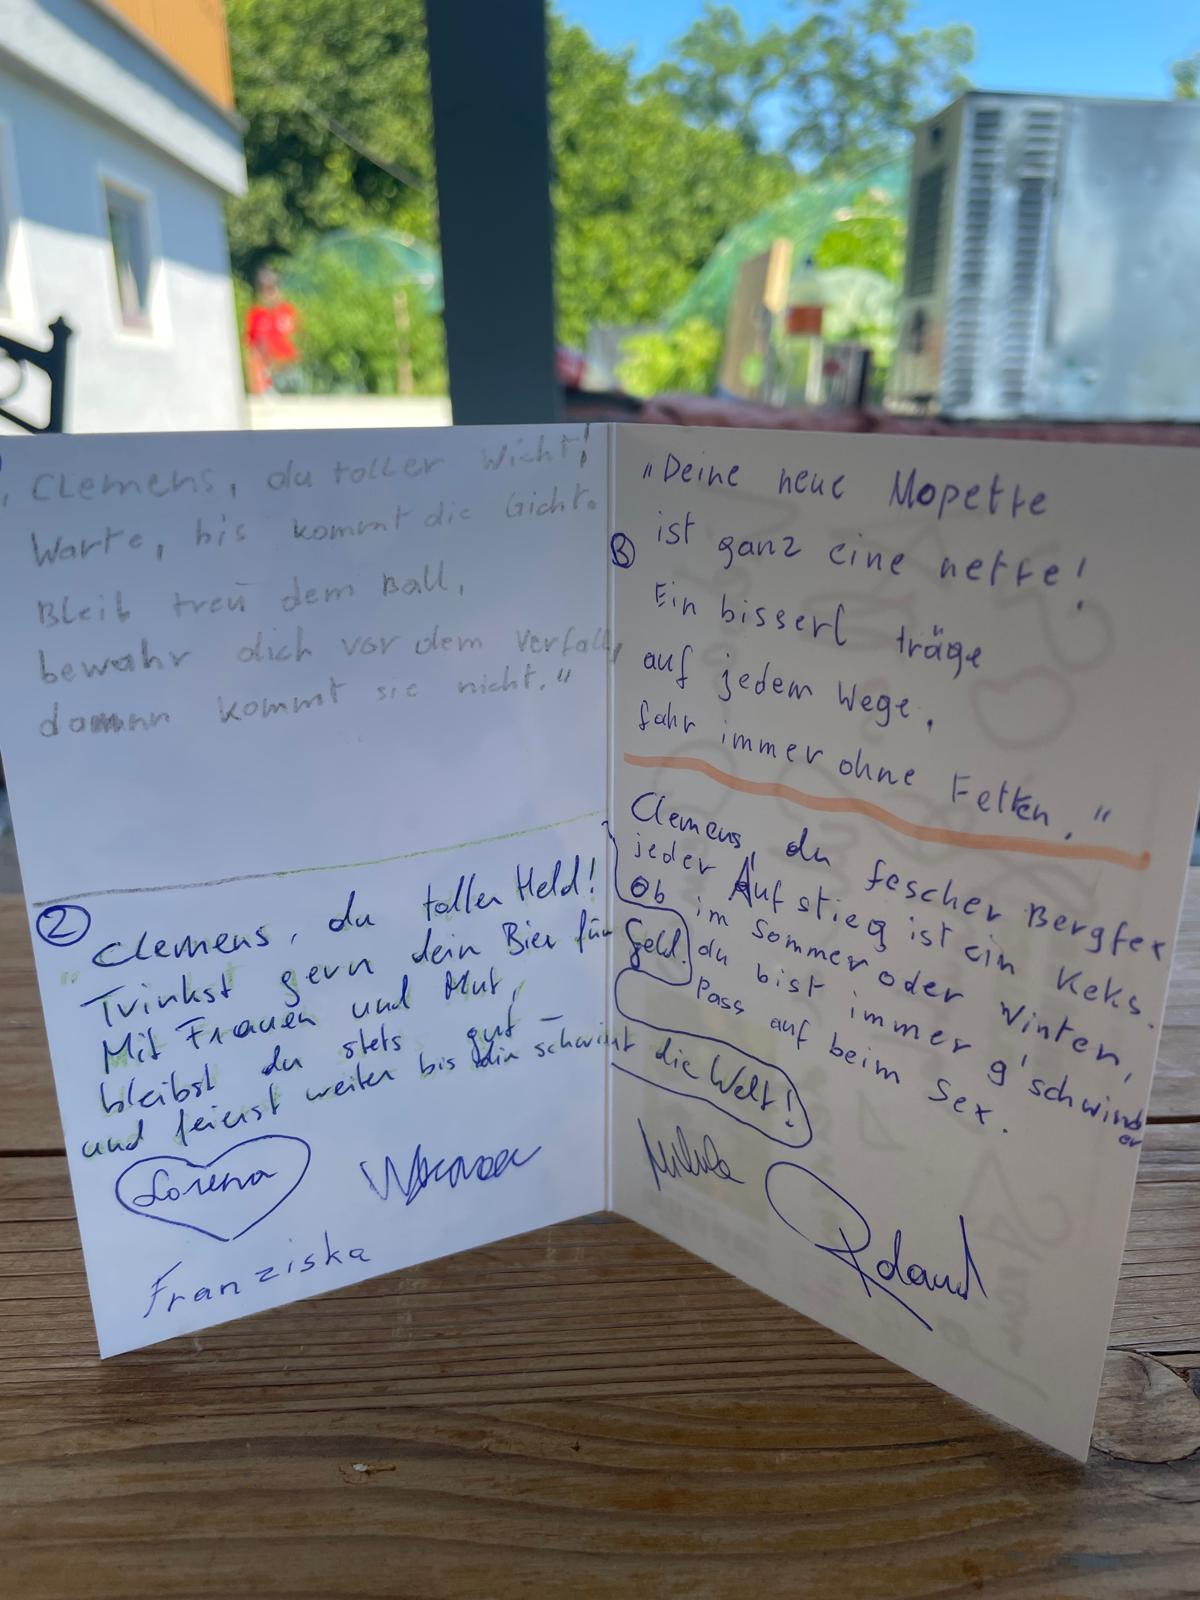 „Clemens, du toller Wicht!
Warte, bis kommt die Gicht.
Bleib treu dem Ball,
bewahr dich vor dem Verfall,
dann kommt sie nicht."
②
"Clemens, du toller Held!
Trinkst gern dein Bier für Geld.
Mit Frauen und Mut,
bleibst du stets gut –
und feierst weiter bis dir schwint die Welt!
Lorena
Franziska
③
„Deine neue Mopette
ist ganz eine nette!
Ein bisserl träge
auf jedem Wege,
fahr immer ohne Fetten."
Clemens, du fescher Bergfex
jeder Aufstieg ist ein Keks.
Ob im Sommer oder Winter,
du bist immer g'schwinder
Pass auf beim Sex.
Roland